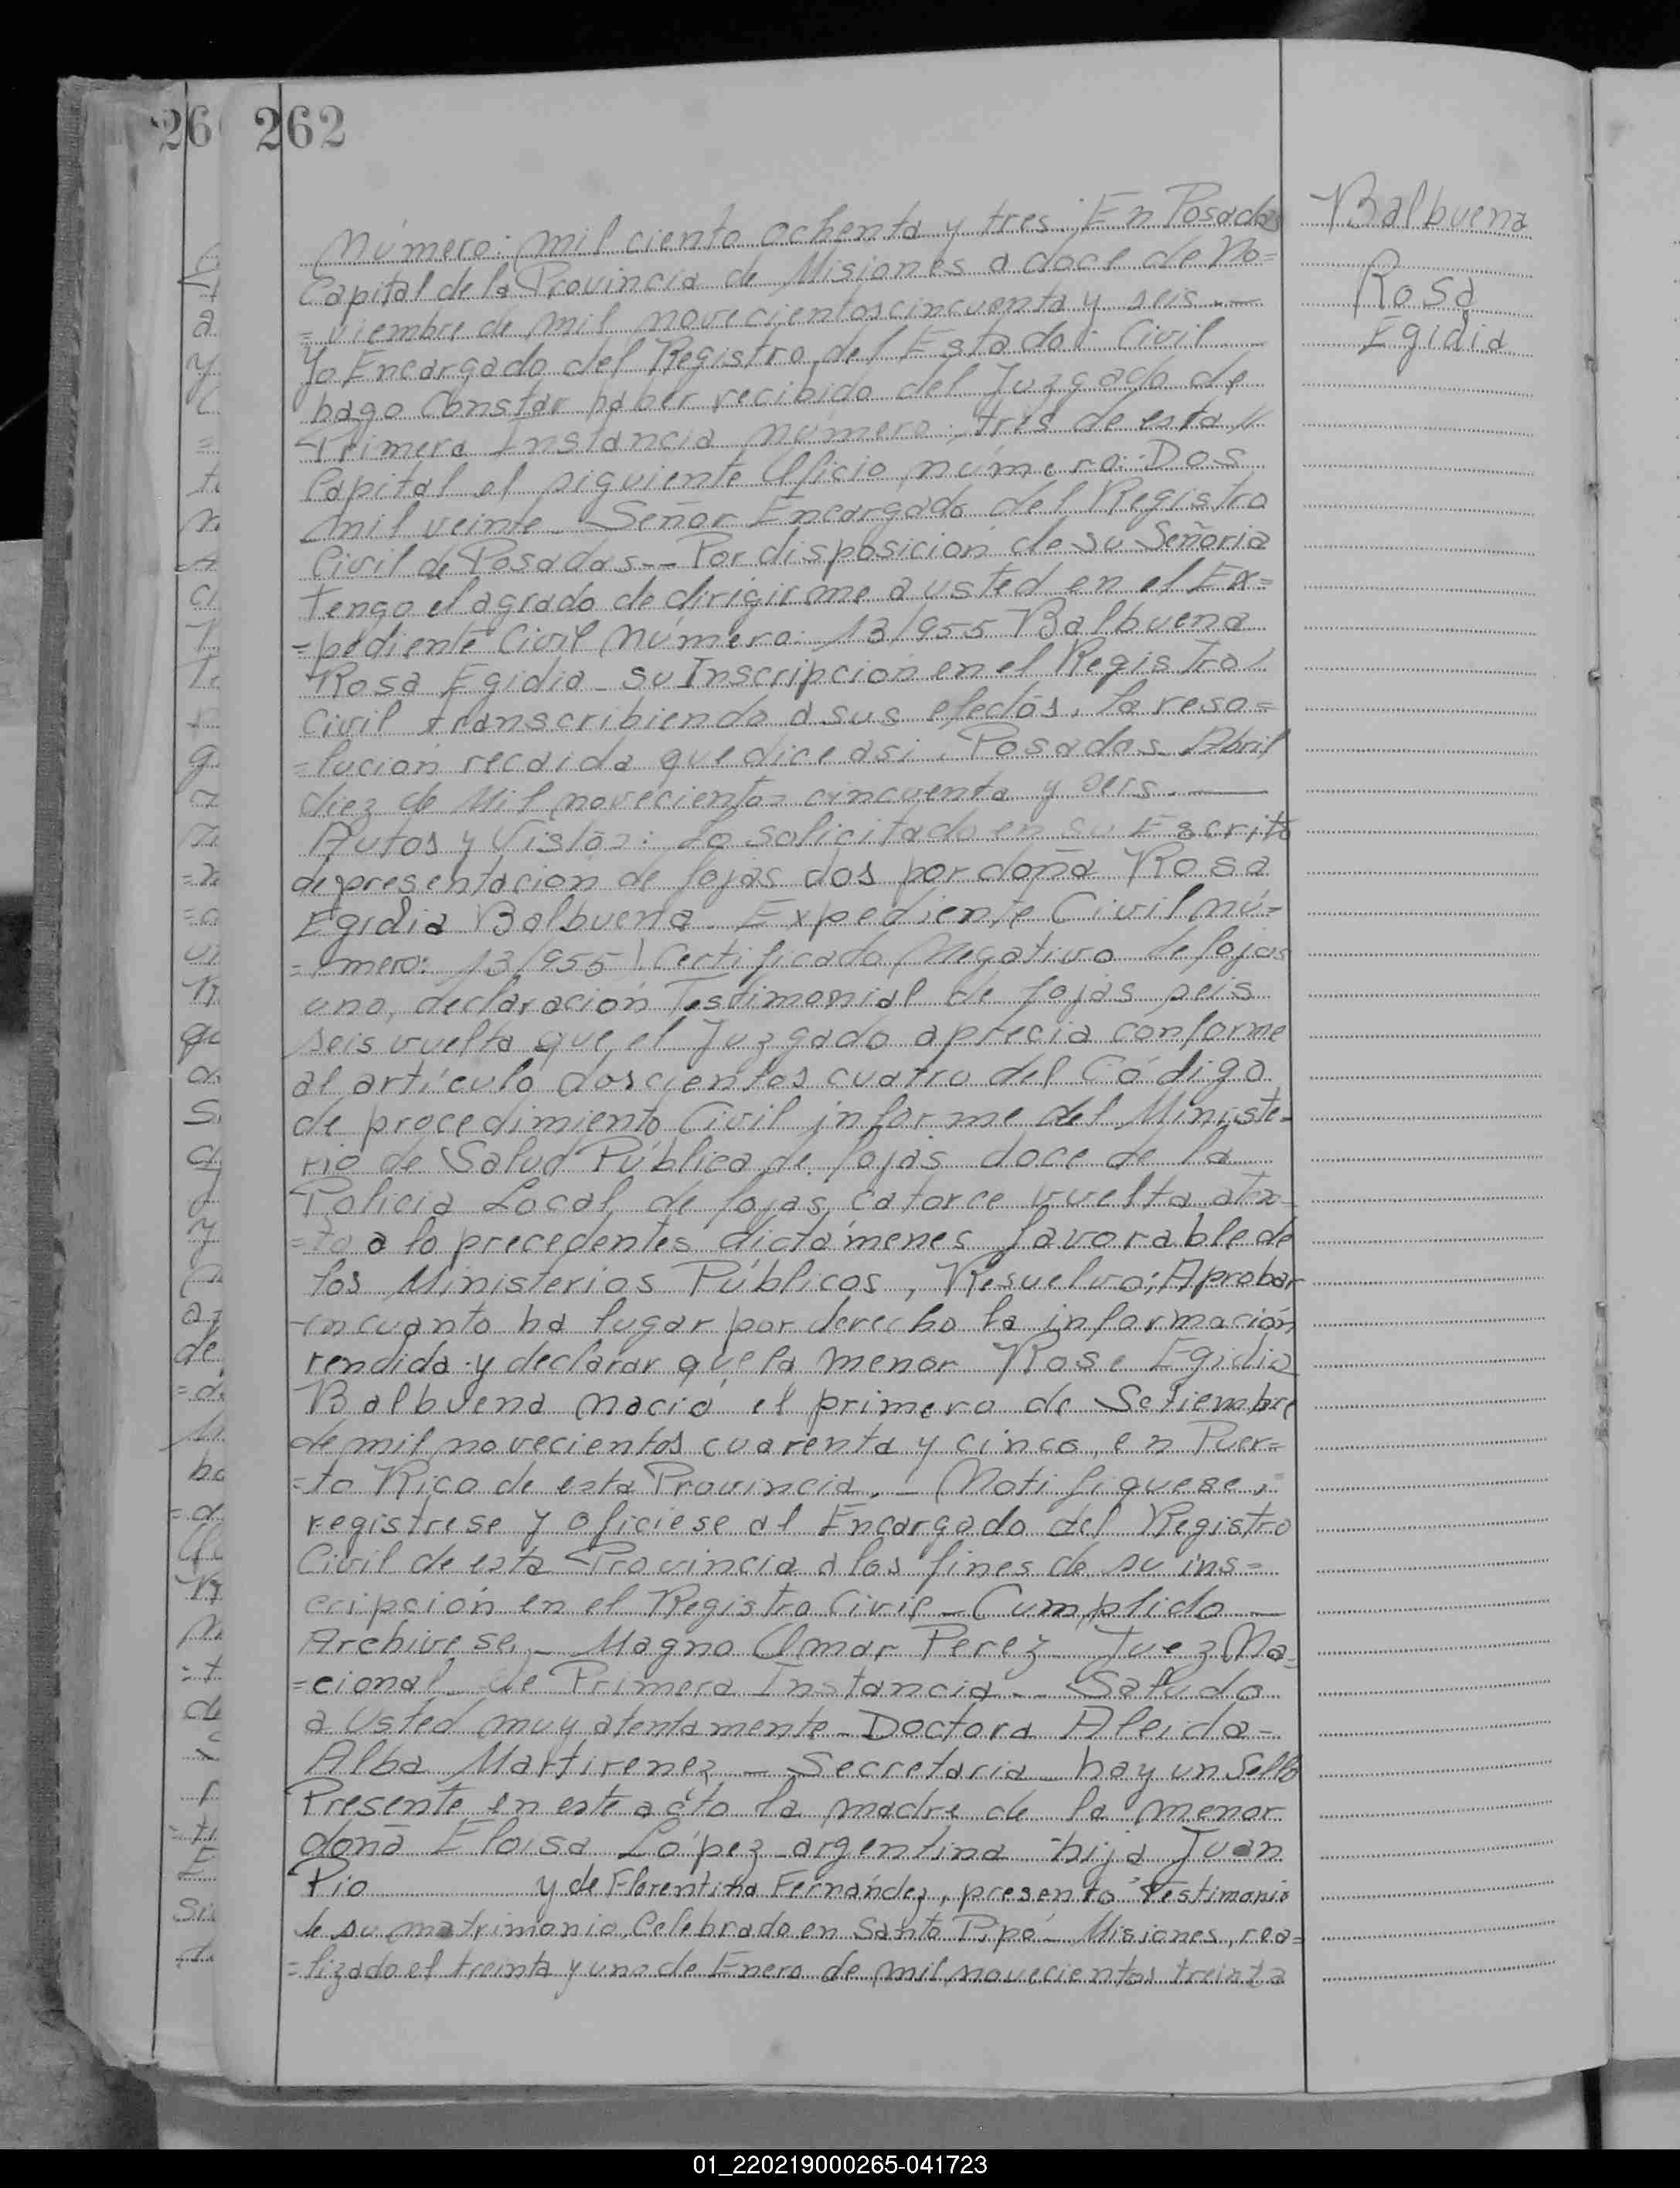 262
Balbuena
Rosa
Egidia
Número: Mil ciento ochenta y tres. En Posadas
Capital de la Provincia de Misiones a doce de No=
=viembre de mil novecientos cincuenta y seis.—
Yo Encargado del Registro del Estado Civil
hago Constar haber recibido del Juzgado de
Primera Instancia número: tres de esta //
Capital el siguiente Oficio número: Dos
mil veinte_ Señor Encargado del Registro
Civil de Posadas-- Por disposición de su Señoria
Tengo el agrado de dirigirme a usted en el Ex=
=pediente Civil Número: 13/955 Balbuena
Rosa Egidia_ su Inscripción en el Registro /
Civil transcribiendo a sus efectos, la reso=
=lución recaida que dice asi. Posadas. Abril
diez de Mil novecientos cincuenta y seis. —
Autos y Vistos: lo solicitado en su Escrito
de presentación de fojas dos por doña Rosa
Egidia Balbuena. Expediente Civil nú=
=mero: 13/955 ! Certificado Negativo de fojas
uno, declaración Testimonial de fojas seis
seis vuelta que el Juzgado aprecia conforme
al artículo doscientos cuatro del Código
de procedimiento Civil informe del Ministe=
rio de Salud Pública de fojas doce de la
Policia Local de fojas catorce vuelta aten=
=to a lo precedentes dictámenes favorable de
los Ministerios Públicos, Resuelvo: Aprobar
en cuanto ha lugar por derecho la información
rendida y declarar que la menor Rosa Egidia
Balbuena nació el primero de Setiembre
de mil novecientos cuarenta y cinco, en Puer=
=to Rico de esta Provincia. - Notifiquese,
registrese y oficiese al Encargado del Registro
Civil de esta Provincia a los fines de su ins=
cripción en el Registro Civil - Cumplido -
Archivese. - Magno Omar Perez Juez Na=
=cional de Primera Instancia -- Saludo
a usted muy atentamente - Doctora Aleida=
Alba Martirenez - Secretaria - hay un Sello
Presente en este acto la madre de la menor
doña Eloisa López - argentina - hija Juan
Pio y de Florentina Fernández, presento Testimonio
de su matrimonio Celebrado en Santo Pipó - Misiones, rea=
=lizado el treinta y uno de Enero de mil novecientos treinta
01_220219000265-041723